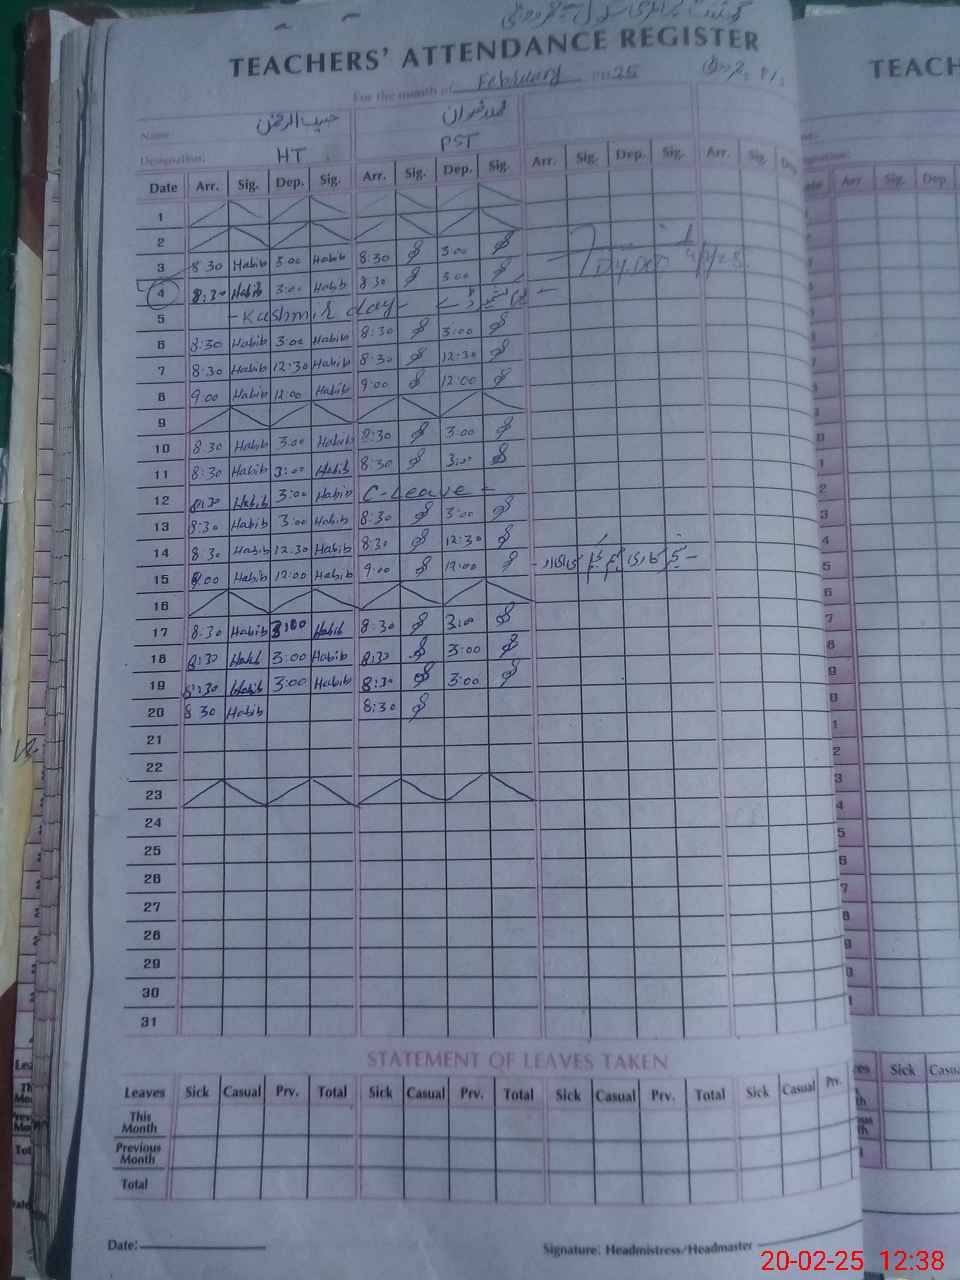 گورنمنٹ پرائمری سکول
TEACHERS' ATTENDANCE REGISTER
For the month of February 2025
Name: حبیب الرحمٰن
Designation: HT PST
Date Arr. Sig. Dep. Sig. Arr. Sig. Dep. Sig. Arr. Sig. Dep. Sig. Arr. Sig. Dep
1
2
3 8:30 Habib 3:00 Habib 8:30 3:00
4 8:30 Habib 3:00 Habib 8:30 3:00
5 - Kashmir day -
6 8:30 Habib 3:00 Habib 8:30 3:00
7 8:30 Habib 12:30 Habib 8:30 12:30
8 9:00 Habib 12:00 Habib 9:00 12:00
9
10 8:30 Habib 3:00 Habib 8:30 3:00
11 8:30 Habib 3:00 Habib 8:30 3:00
12 8:30 Habib 3:00 Habib C-Leave -
13 8:30 Habib 3:00 Habib 8:30 3:00
14 8:30 Habib 12:30 Habib 8:30 12:30
15 9:00 Habib 12:00 Habib 9:00 12:00
16
17 8:30 Habib 3:00 Habib 8:30 3:00
18 8:30 Habib 3:00 Habib 8:30 3:00
19 8:30 Habib 3:00 Habib 8:30 3:00
20 8:30 Habib 8:30
21
22
23
24
25
26
27
28
29
30
31
STATEMENT OF LEAVES TAKEN
Leaves Sick Casual Prv. Total Sick Casual Prv. Total Sick Casual Prv. Total Sick Casual Prv.
This Month
Previous Month
Total
Date:
Signature: Headmistress/Headmaster
TEACH
Arr Sig. Dep
Sick Casu
20-02-25 12:38